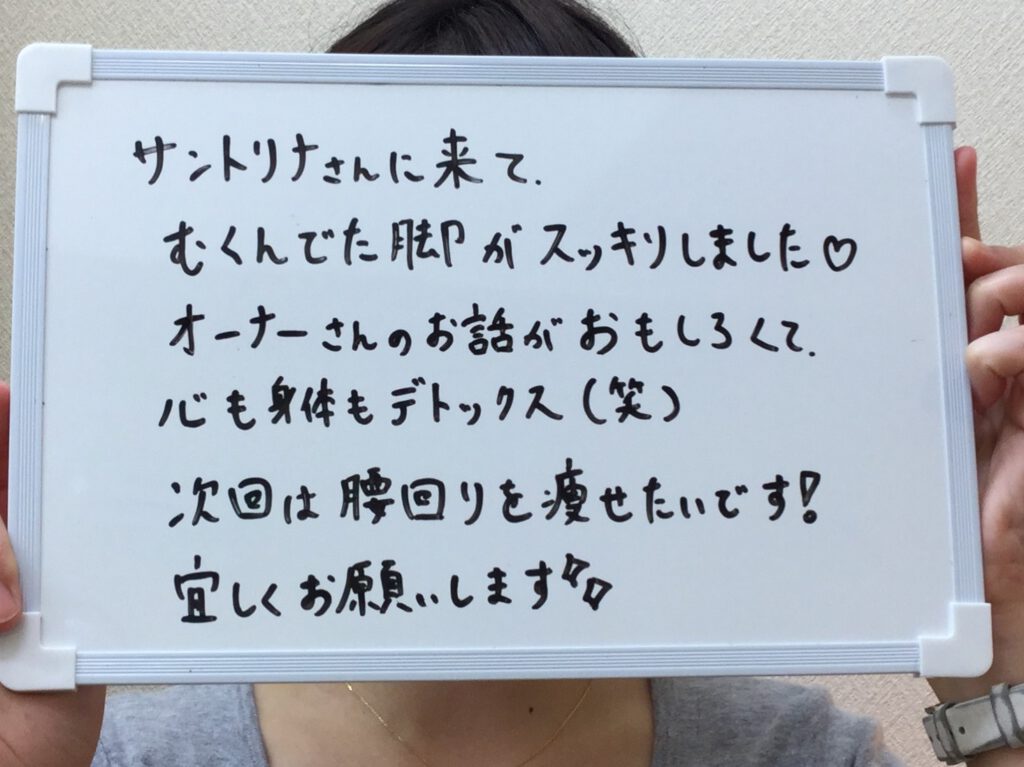 サントリナさんに来て.
むくんでた脚がスッキリしました♡
オーナーさんのお話がおもしろくて.
心も身体もデトックス(笑)
次回は腰回りを痩せたいです!
宜しくお願いします